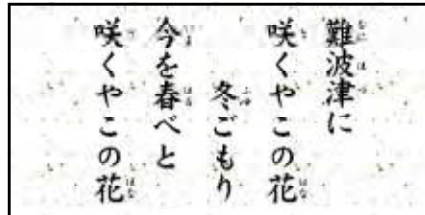 難波津に
咲くやこの花
冬ごもり
今を春べと
咲くやこの花